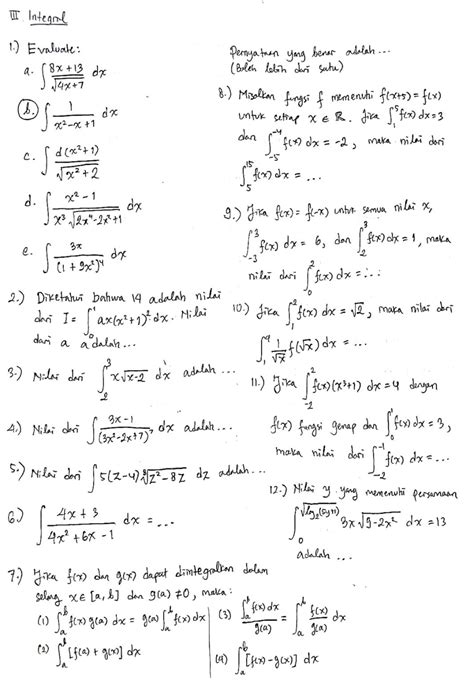 III Integral
1.) Evaluate:
a. ∫ (8x + 13)/√(4x+7) dx
b. ∫ 1/(x²-x+1) dx
c. ∫ d(x²+1)/√(x²+2)
d. ∫ (x²-1)/(x³√(2x⁴-2x²+1)) dx
e. ∫ 3x/(1+9x²)⁴ dx
2.) Diketahui bahwa 14 adalah nilai
dari I = ∫₀¹ ax(x²+1)² dx. Nilai
dari a adalah...
3.) Nilai dari ∫₂³ x√(x-2) dx adalah...
4.) Nilai dari ∫ (3x-1)/(3x²-2x+7)⁷ dx adalah...
5.) Nilai dari ∫ 5(z-4) ³√(z²-8z) dz adalah...
6.) ∫ (4x+3)/(4x²+6x-1) dx = ...
7.) Jika f(x) dan g(x) dapat diintegralkan dalam
selang x ∈ [a, b] dan g(a) ≠ 0, maka:
(1) ∫ₐᵇ f(x) g(a) dx = g(a) ∫ₐᵇ f(x) dx
(2) ∫ₐᵇ [f(a) + g(x)] dx
(3) ∫ₐᵇ f(x) dx / g(a) = ∫ₐᵇ f(x)/g(a) dx
(4) ∫ₐᵇ [f(x) - g(x)] dx
Pernyataan yang benar adalah...
(Boleh lebih dari satu)
8.) Misalkan fungsi f memenuhi f(x+5) = f(x)
untuk setiap x ∈ ℝ. Jika ∫₁⁵ f(x) dx = 3
dan ∫₋₅⁻⁴ f(x) dx = -2, maka nilai dari
∫₅¹⁵ f(x) dx = ...
9.) Jika f(x) = f(-x) untuk semua nilai x,
∫₋₃³ f(x) dx = 6, dan ∫₂³ f(x) dx = 1, maka
nilai dari ∫₀² f(x) dx = ...
10.) Jika ∫₁² f(x) dx = √2, maka nilai dari
∫₁⁴ 1/√x f(√x) dx = ...
11.) Jika ∫₋₂² f(x)(x³+1) dx = 4 dengan
f(x) fungsi genap dan ∫₀¹ f(x) dx = 3,
maka nilai dari ∫₋₂⁻¹ f(x) dx = ...
12.) Nilai y yang memenuhi persamaan
3x√(9-2x²) dx = 13
adalah...